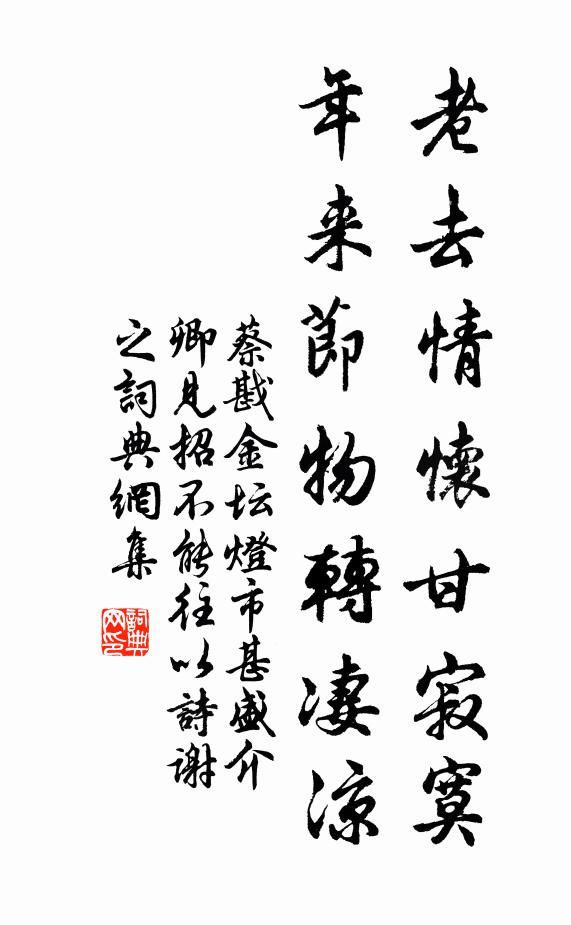 老去情懷甘寂寞
年来節物轉淒涼
蔡戡金坛燈市甚盛介
卿見招不能往以詩謝
之詞典網集
詞典
网印